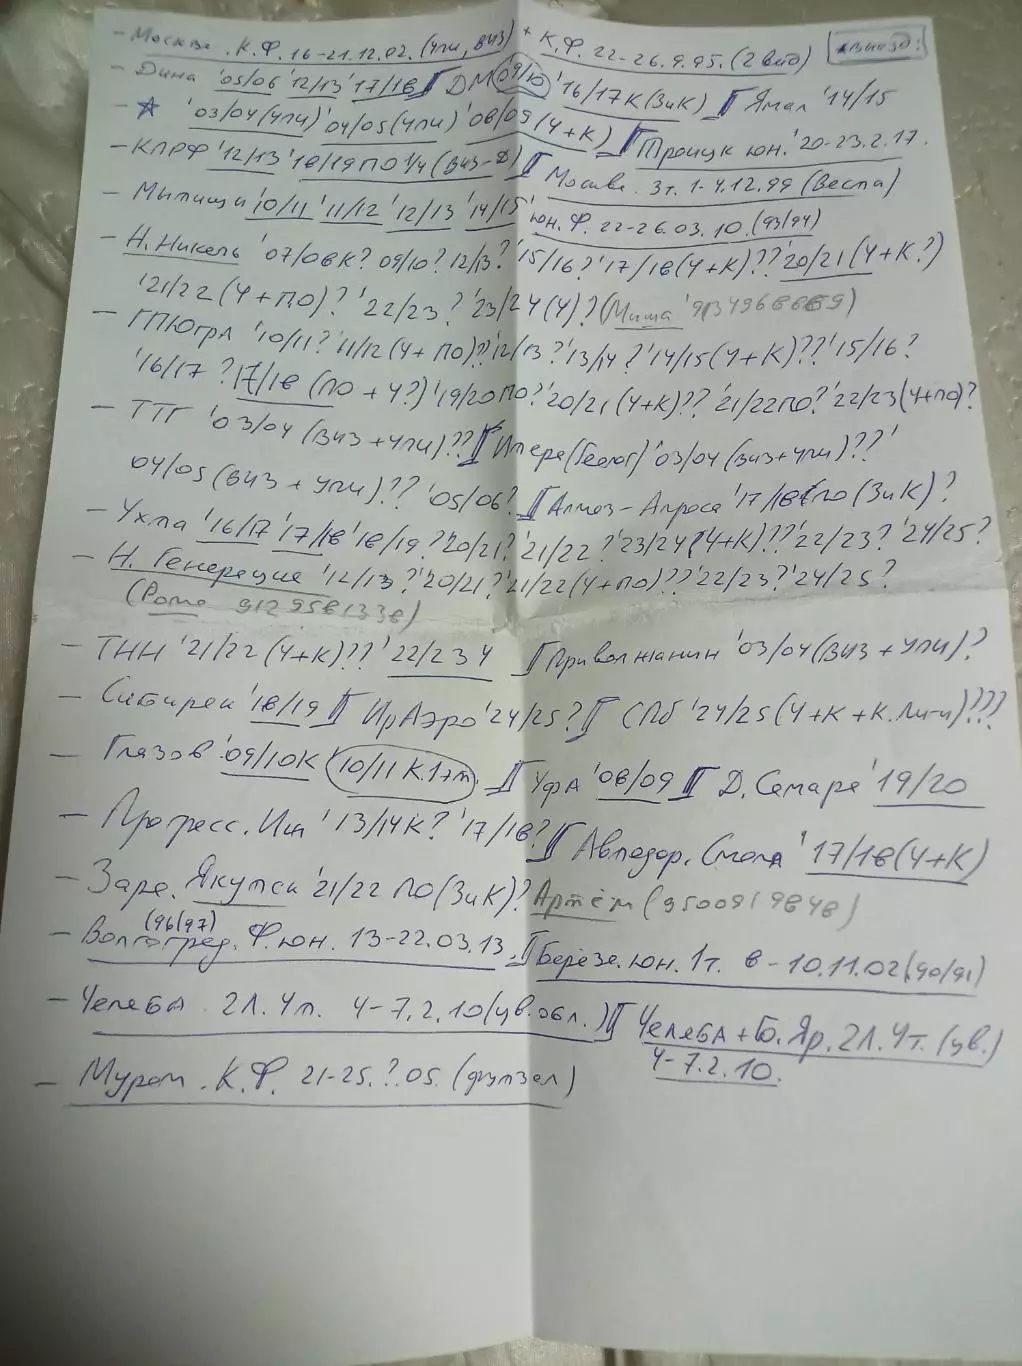 - Москва. К.Ф. 16-21.12.02. (упи, виз) + К.Ф. 22-26.9.95. (2 вид) Выезд:
- Дина '05/06 '12/13 '17/18 ДМ '09/10 '16/17К (ЗиК) Ямал '14/15
- ☆ '03/04 (упи) '04/05 (упи) '08/09 (Ч+К) Троицк юн. '20-23.2.17.
- КПРФ '12/13 '18/19 ПО 1/4 (ВИЗ-Д) Москва. 3т. 1-4.12.99 (Весна)
- Мытищи '10/11 '11/12 '12/13 '14/15 юн. Ф. 22-26.03.10. (93/94)
- Н. Никель '07/08К? 09/10? 12/13? '15/16? '17/18 (Ч+К)?? '20/21 (Ч+К?)
'21/22 (Ч+ПО)? '22/23? '23/24 (Ч)? (Миша '9134968669)
- ГПЮгра '10/11? '11/12 (Ч+ПО)?? '12/13? '13/14? '14/15 (Ч+К)?? '15/16?
'16/17? 17/18 (ПО+Ч?) '19/20 ПО? '20/21 (Ч+К)?? '21/22 ПО? '22/23 (Ч+ПО)?
- ТТГ '03/04 (ВИЗ+упи)?? (Геолог) '03/04 (ВИЗ+упи)?? '
04/05 (ВИЗ+упи)?? '05/06? Алмаз-Алроса '17/18 ПО (ЗиК)?
- Ухта '16/17 '17/18 '18/19? '20/21? '21/22? '23/24 (Ч+К)?? '22/23? '24/25?
- Н. Генерация '12/13? '20/21? '21/22 (Ч+ПО)?? '22/23? '24/25?
(Рома 9129581338)
- ТНН '21/22 (Ч+К)?? '22/23 Ч Приволжанин '03/04 (ВИЗ+упи)?
- Сибиряк '18/19 ИрАэро '24/25? СПб '24/25 (Ч+К+К.Лиги)???
- Глазов '09/10К 10/11 К.1эт. Уфа '08/09 Д. Самара '19/20
- Прогресс. '13/14К? '17/18? Автодор. Смол '17/18 (Ч+К)
- Заря. Якутск '21/22 ПО (ЗиК)? Артём (9500919848)
(96/97)
- Волгоград. Ф. юн. 13-22.03.13. Берёза. юн. 1т. 8-10.11.02 (90/91)
- ЧелябА 2Л. 4т. 4-7.2.10 (цв. обл.) ЧелябА + Б. Яр. 2Л. 4т. (цв.)
4-7.2.10.
- Муром. К.Ф. 21-25.?.05. (футзал)